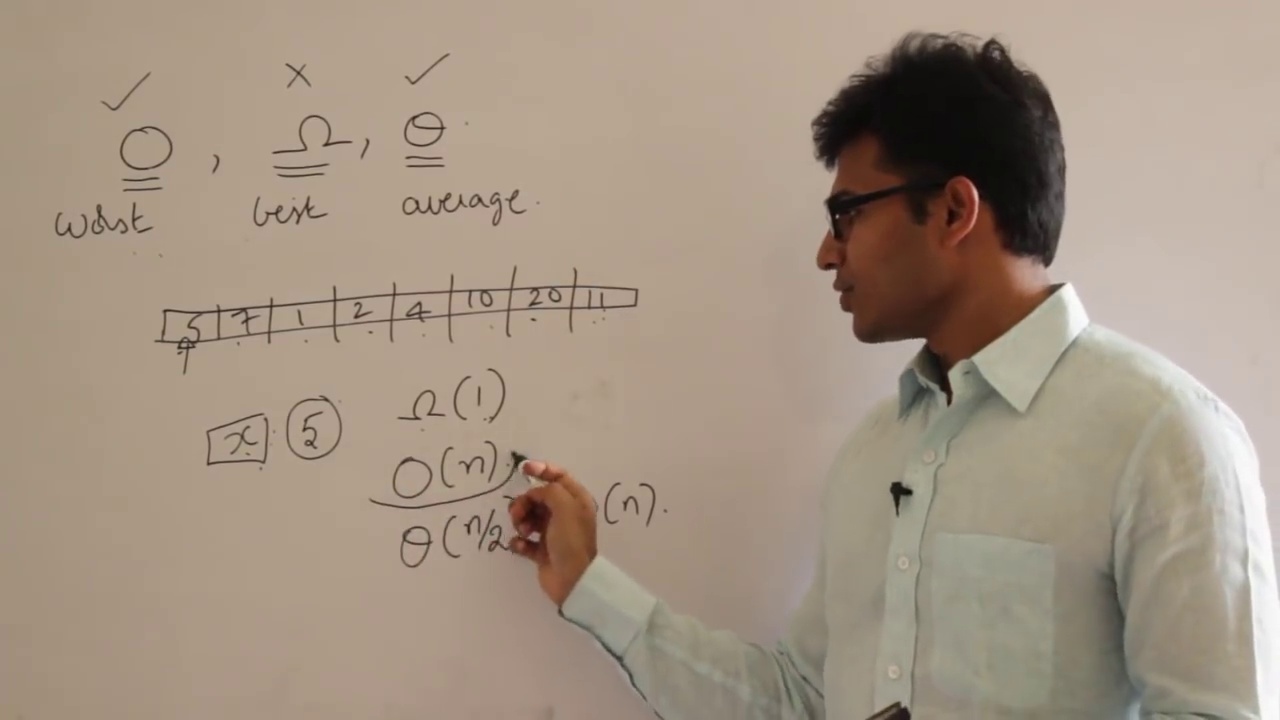 ✓ × ✓
O , Ω , θ
worst best average.
5 7 1 2 4 10 20 11
x : 5 Ω(1)
O(n).
θ(n/2 (n).